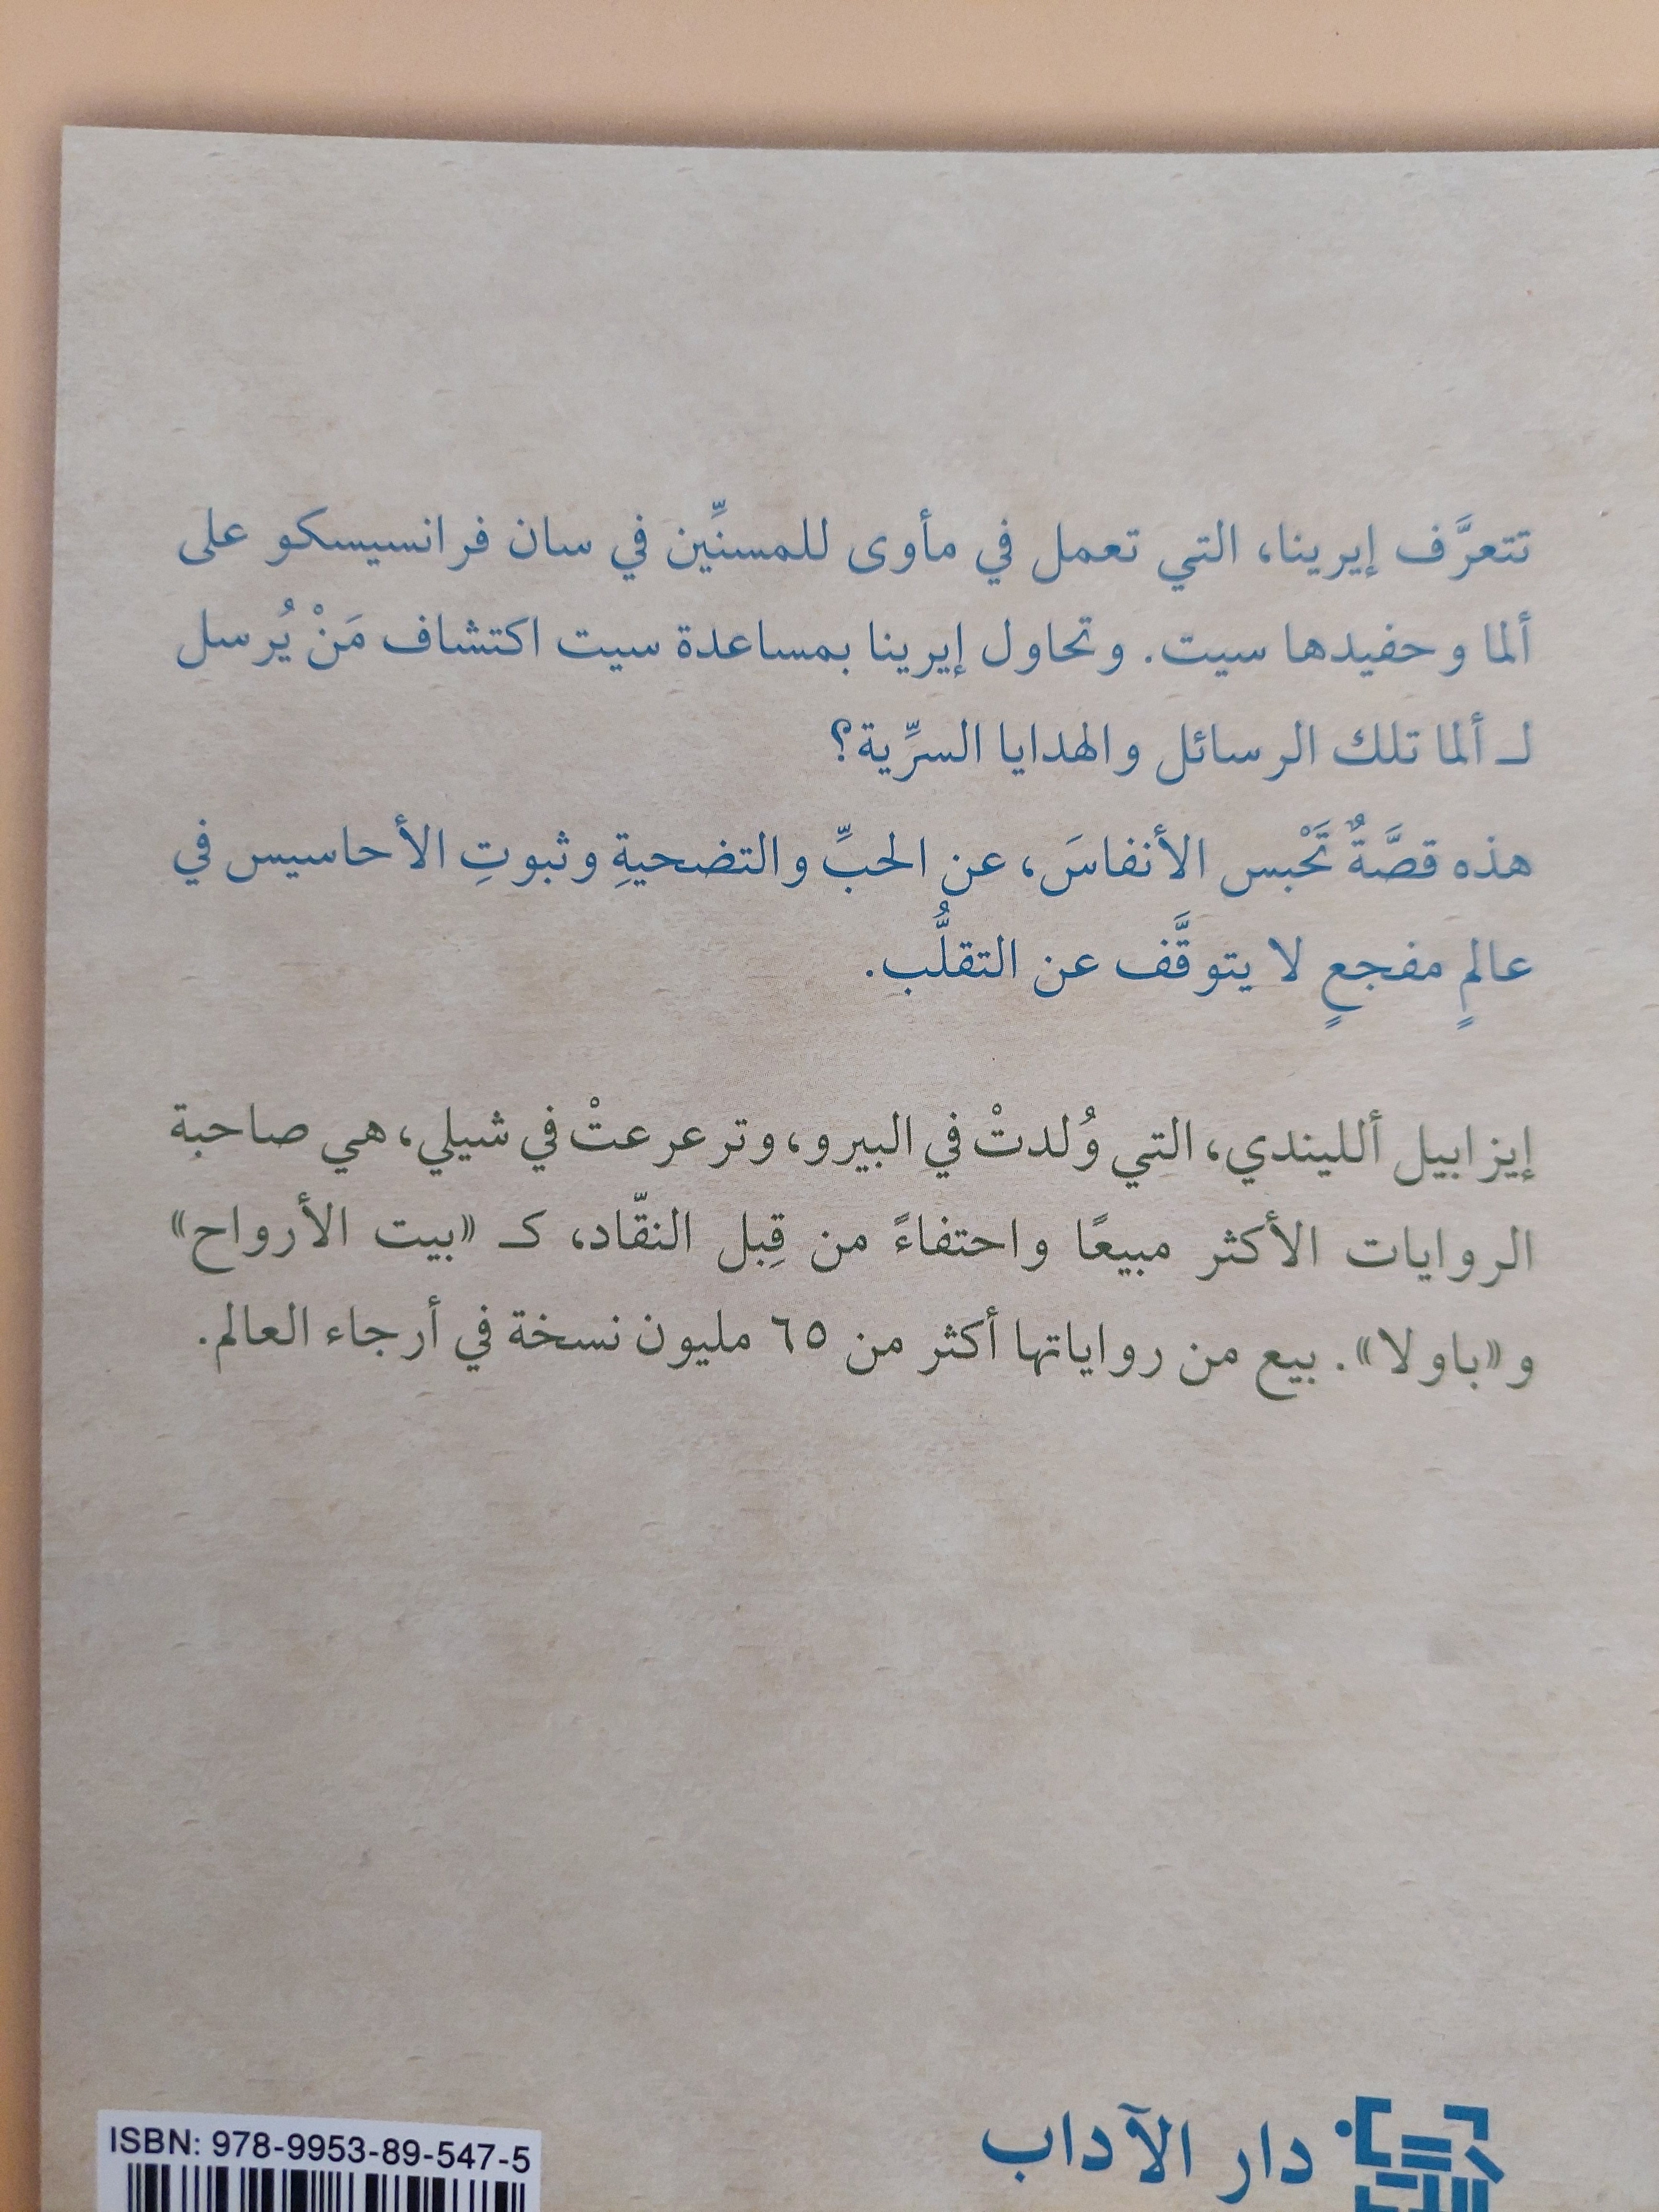 تتعرَّف إيرينا، التي تعمل في مأوى للمسنِّين في سان فرانسيسكو على
ألما وحفيدها سيت. وتحاول إيرينا بمساعدة سيت اكتشاف مَنْ يُرسل
لـ ألما تلك الرسائل والهدايا السرِّية؟
هذه قصَّةٌ تَحْبس الأنفاسَ، عن الحبِّ والتضحيةِ وثبوتِ الأحاسيس في
عالمٍ مفجعٍ لا يتوقَّف عن التقلُّب.
إيزابيل ألليندي، التي وُلدتْ في البيرو، وترعرعتْ في شيلي، هي صاحبة
الروايات الأكثر مبيعًا واحتفاءً من قِبل النقّاد، كـ «بيت الأرواح»
و«باولا». بيع من رواياتها أكثر من ٦٥ مليون نسخة في أرجاء العالم.
دار الآداب
ISBN: 978-9953-89-547-5